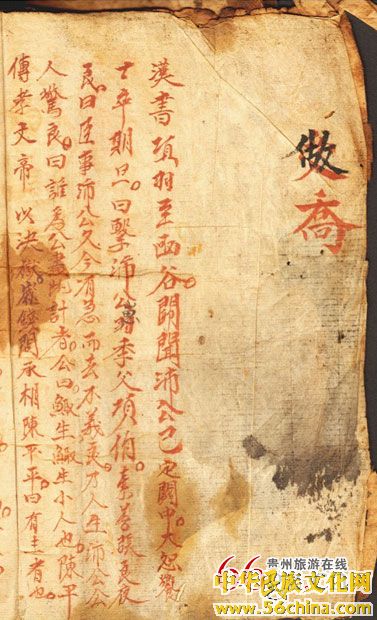 做
喬
漢書項羽至函谷關聞沛公已定關中大怒饗
士卒期旦。曰擊沛公季父項伯。素善張良夜
良曰臣事沛公久今有急而去不義沛公公
人驚良。曰誰爲公畫此計者。公曰鯫生鯫生小人也。陳平
傳孝文帝以決獄錢問丞相陳平。平曰有主者也。
貴州旅游在线
中华民族文化网
www.56china.com